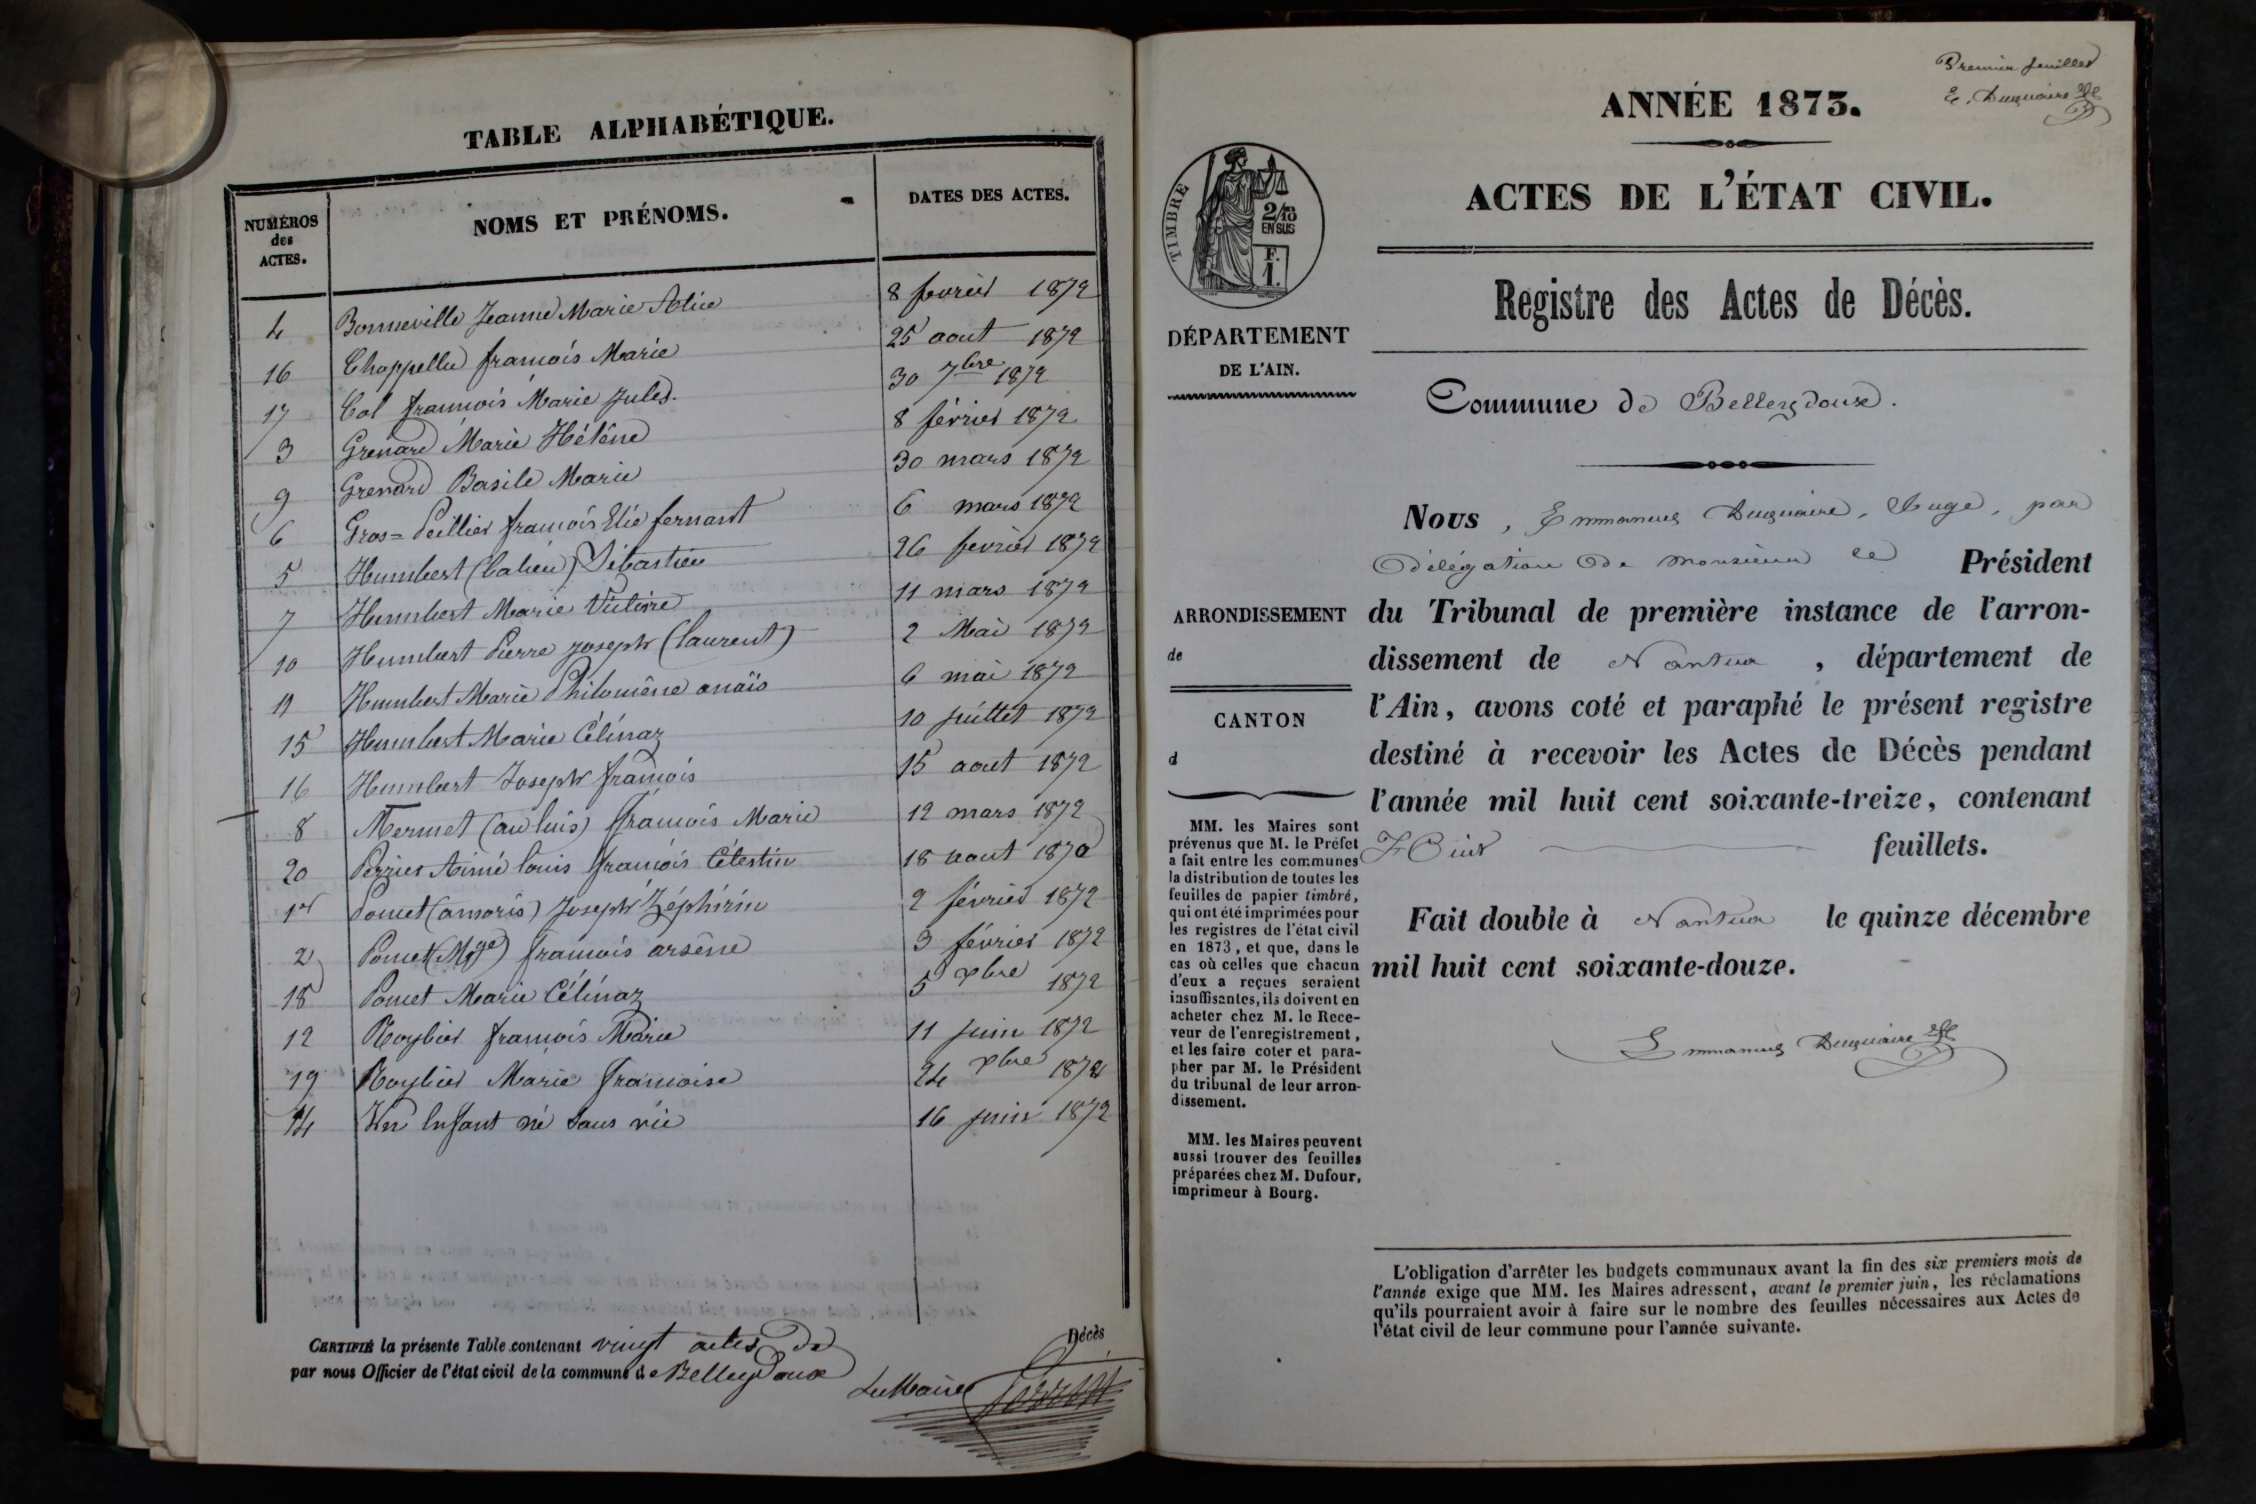 TABLE ALPHABÉTIQUE.
NUMÉROS des ACTES. NOMS ET PRÉNOMS. DATES DES ACTES.
4 Bonneville Jeanne Marie Alice 8 fevrier 1872
16 Chappellu françois Marie 25 aout 1872
17 Col françois Marie Jules. 30 7bre 1872
3 Grenard Marie Hélène 8 février 1872
9 Grenard Basile Marie 30 mars 1872
6 Gros=Peillier françois Elie fernant 6 mars 1872
5 Humbert (Calien) Sébastien 26 fevrier 1872
7 Humbert Marie Victoire 11 mars 1872
10 Humbert Pierre Joseph (laurent) 2 Mai 1872
11 Humbert Marie Philomène anaïs 6 mai 1872
15 Humbert Marie Célinaz 10 juillet 1872
16 Humbert Joseph françois 15 aout 1872
8 Mermet (au luis) françois Marie 12 mars 1872
20 Perrier Aimé louis françois Célestin 18 aout 1870
1er Pomet (amoris) Joseph Zéphirin 2 février 1872
2 Pomet (Mge) françois arsène 3 février 1872
18 Pomet Marie Célinaz 5 xbre 1872
12 Roybier françois Marie 11 juin 1872
19 Roybier Marie françoise 24 xbre 1872
14 Un Enfant né sans vie 16 juin 1872
CERTIFIÉ la présente Table contenant vingt actes de Décès
par nous Officier de l'état civil de la commune de Belleydoux
Le Maire
Premier feuillet
E. Duquaire
ANNÉE 1873.
ACTES DE L'ÉTAT CIVIL.
TIMBRE
2/10
EN SUS
F.
1.
Registre des Actes de Décès.
DÉPARTEMENT
DE L'AIN.
Commune de Belleydoux.
Nous, Emmanuel Duquaire, Juge, par
délégation de monsieur le Président
du Tribunal de première instance de l'arron-
dissement de Nantua, département de
l'Ain, avons coté et paraphé le présent registre
destiné à recevoir les Actes de Décès pendant
l'année mil huit cent soixante-treize, contenant
Huit feuillets.
Fait double à Nantua le quinze décembre
mil huit cent soixante-douze.
Emmanuel Duquaire
ARRONDISSEMENT
de
CANTON
d
MM. les Maires sont
prévenus que M. le Préfet
a fait entre les communes
la distribution de toutes les
feuilles de papier timbré,
qui ont été imprimées pour
les registres de l'état civil
en 1873, et que, dans le
cas où celles que chacun
d'eux a reçues seraient
insuffisantes, ils doivent en
acheter chez M. le Rece-
veur de l'enregistrement,
et les faire coter et para-
pher par M. le Président
du tribunal de leur arron-
dissement.
MM. les Maires peuvent
aussi trouver des feuilles
préparées chez M. Dufour,
imprimeur à Bourg.
L'obligation d'arrêter les budgets communaux avant la fin des six premiers mois de
l'année exige que MM. les Maires adressent, avant le premier juin, les réclamations
qu'ils pourraient avoir à faire sur le nombre des feuilles nécessaires aux Actes de
l'état civil de leur commune pour l'année suivante.